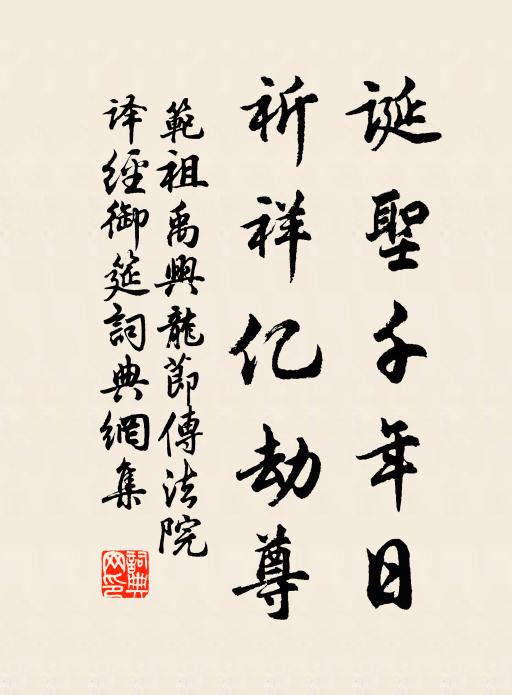 誕聖千年日
祈祥亿劫尊
範祖禹興龍節傳法院
译經御筵詞典網集
詞典
网印